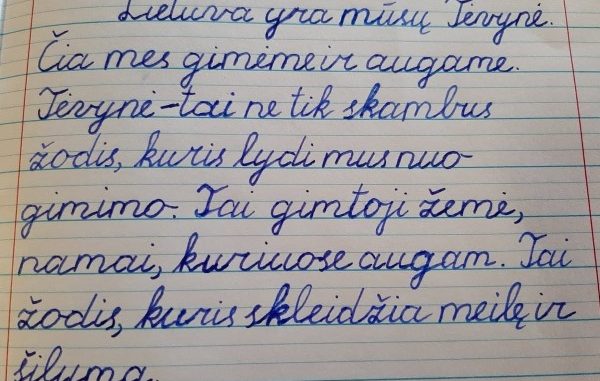 Lietuva yra mūsų Tėvynė.
Čia mes gimėme ir augame.
Tėvynė-tai ne tik skambus
žodis, kuris lydi mus nuo
gimimo. Tai gimtoji žemė,
namai, kuriuose augam. Tai
žodis, kuris skleidžia meilę ir
šilumą.